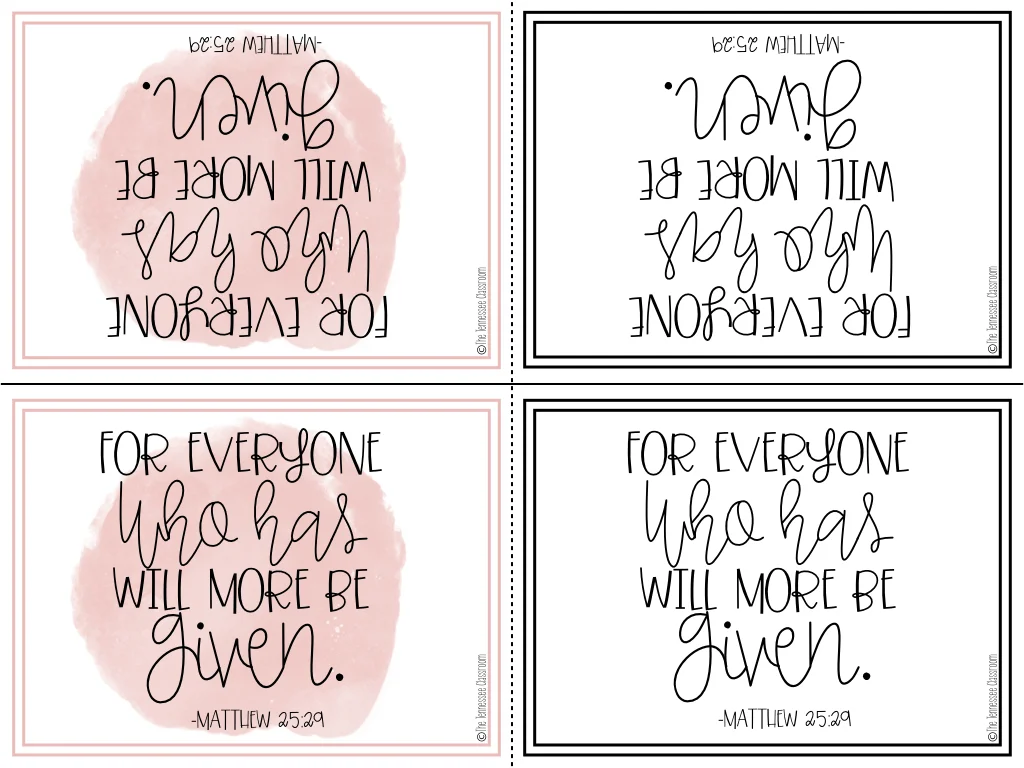 FOR EVERYONE
who has
WILL MORE BE
given.
-MATTHEW 25:29
©The Tennessee Classroom
FOR EVERYONE
who has
WILL MORE BE
given.
-MATTHEW 25:29
©The Tennessee Classroom
FOR EVERYONE
who has
WILL MORE BE
given.
-MATTHEW 25:29
©The Tennessee Classroom
FOR EVERYONE
who has
WILL MORE BE
given.
-MATTHEW 25:29
©The Tennessee Classroom